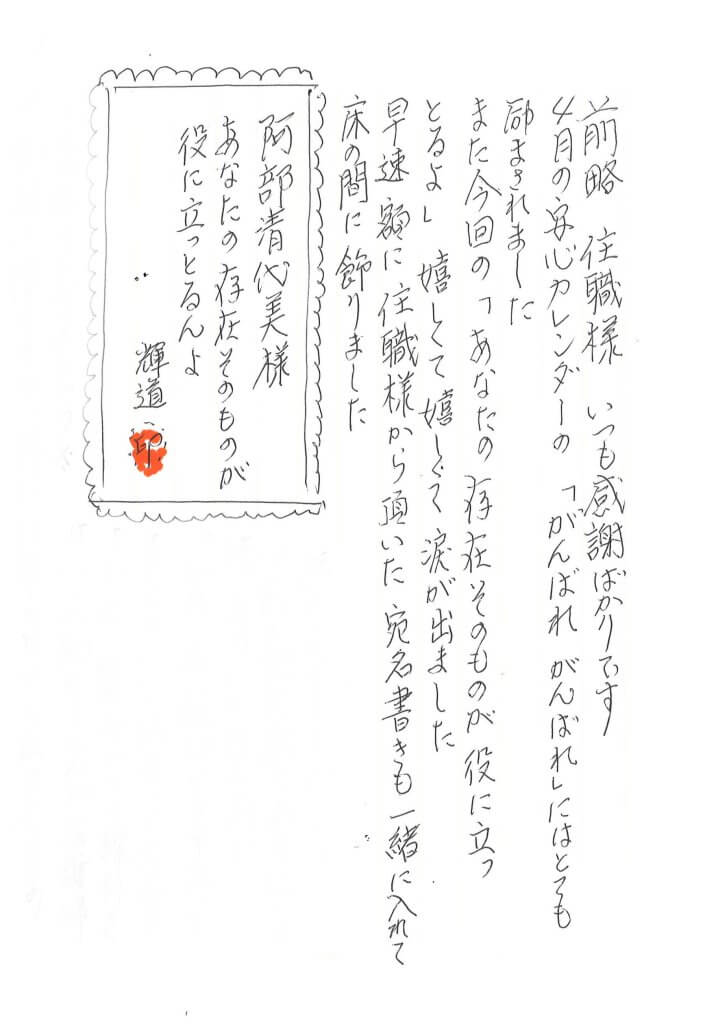 前略 住職様 いつも感謝ばかりです
4月の安心カレンダーの 「がんばれ がんばれ」にはとても
励まされました
また今回の「あなたの存在そのものが役に立っ
とるよ」 嬉しくて嬉しくて涙が出ました
早速額に住職様から頂いた宛名書きも一緒に入れて
床の間に飾りました
阿部清代美様
あなたの存在そのものが
役に立っとるんよ
輝道 印